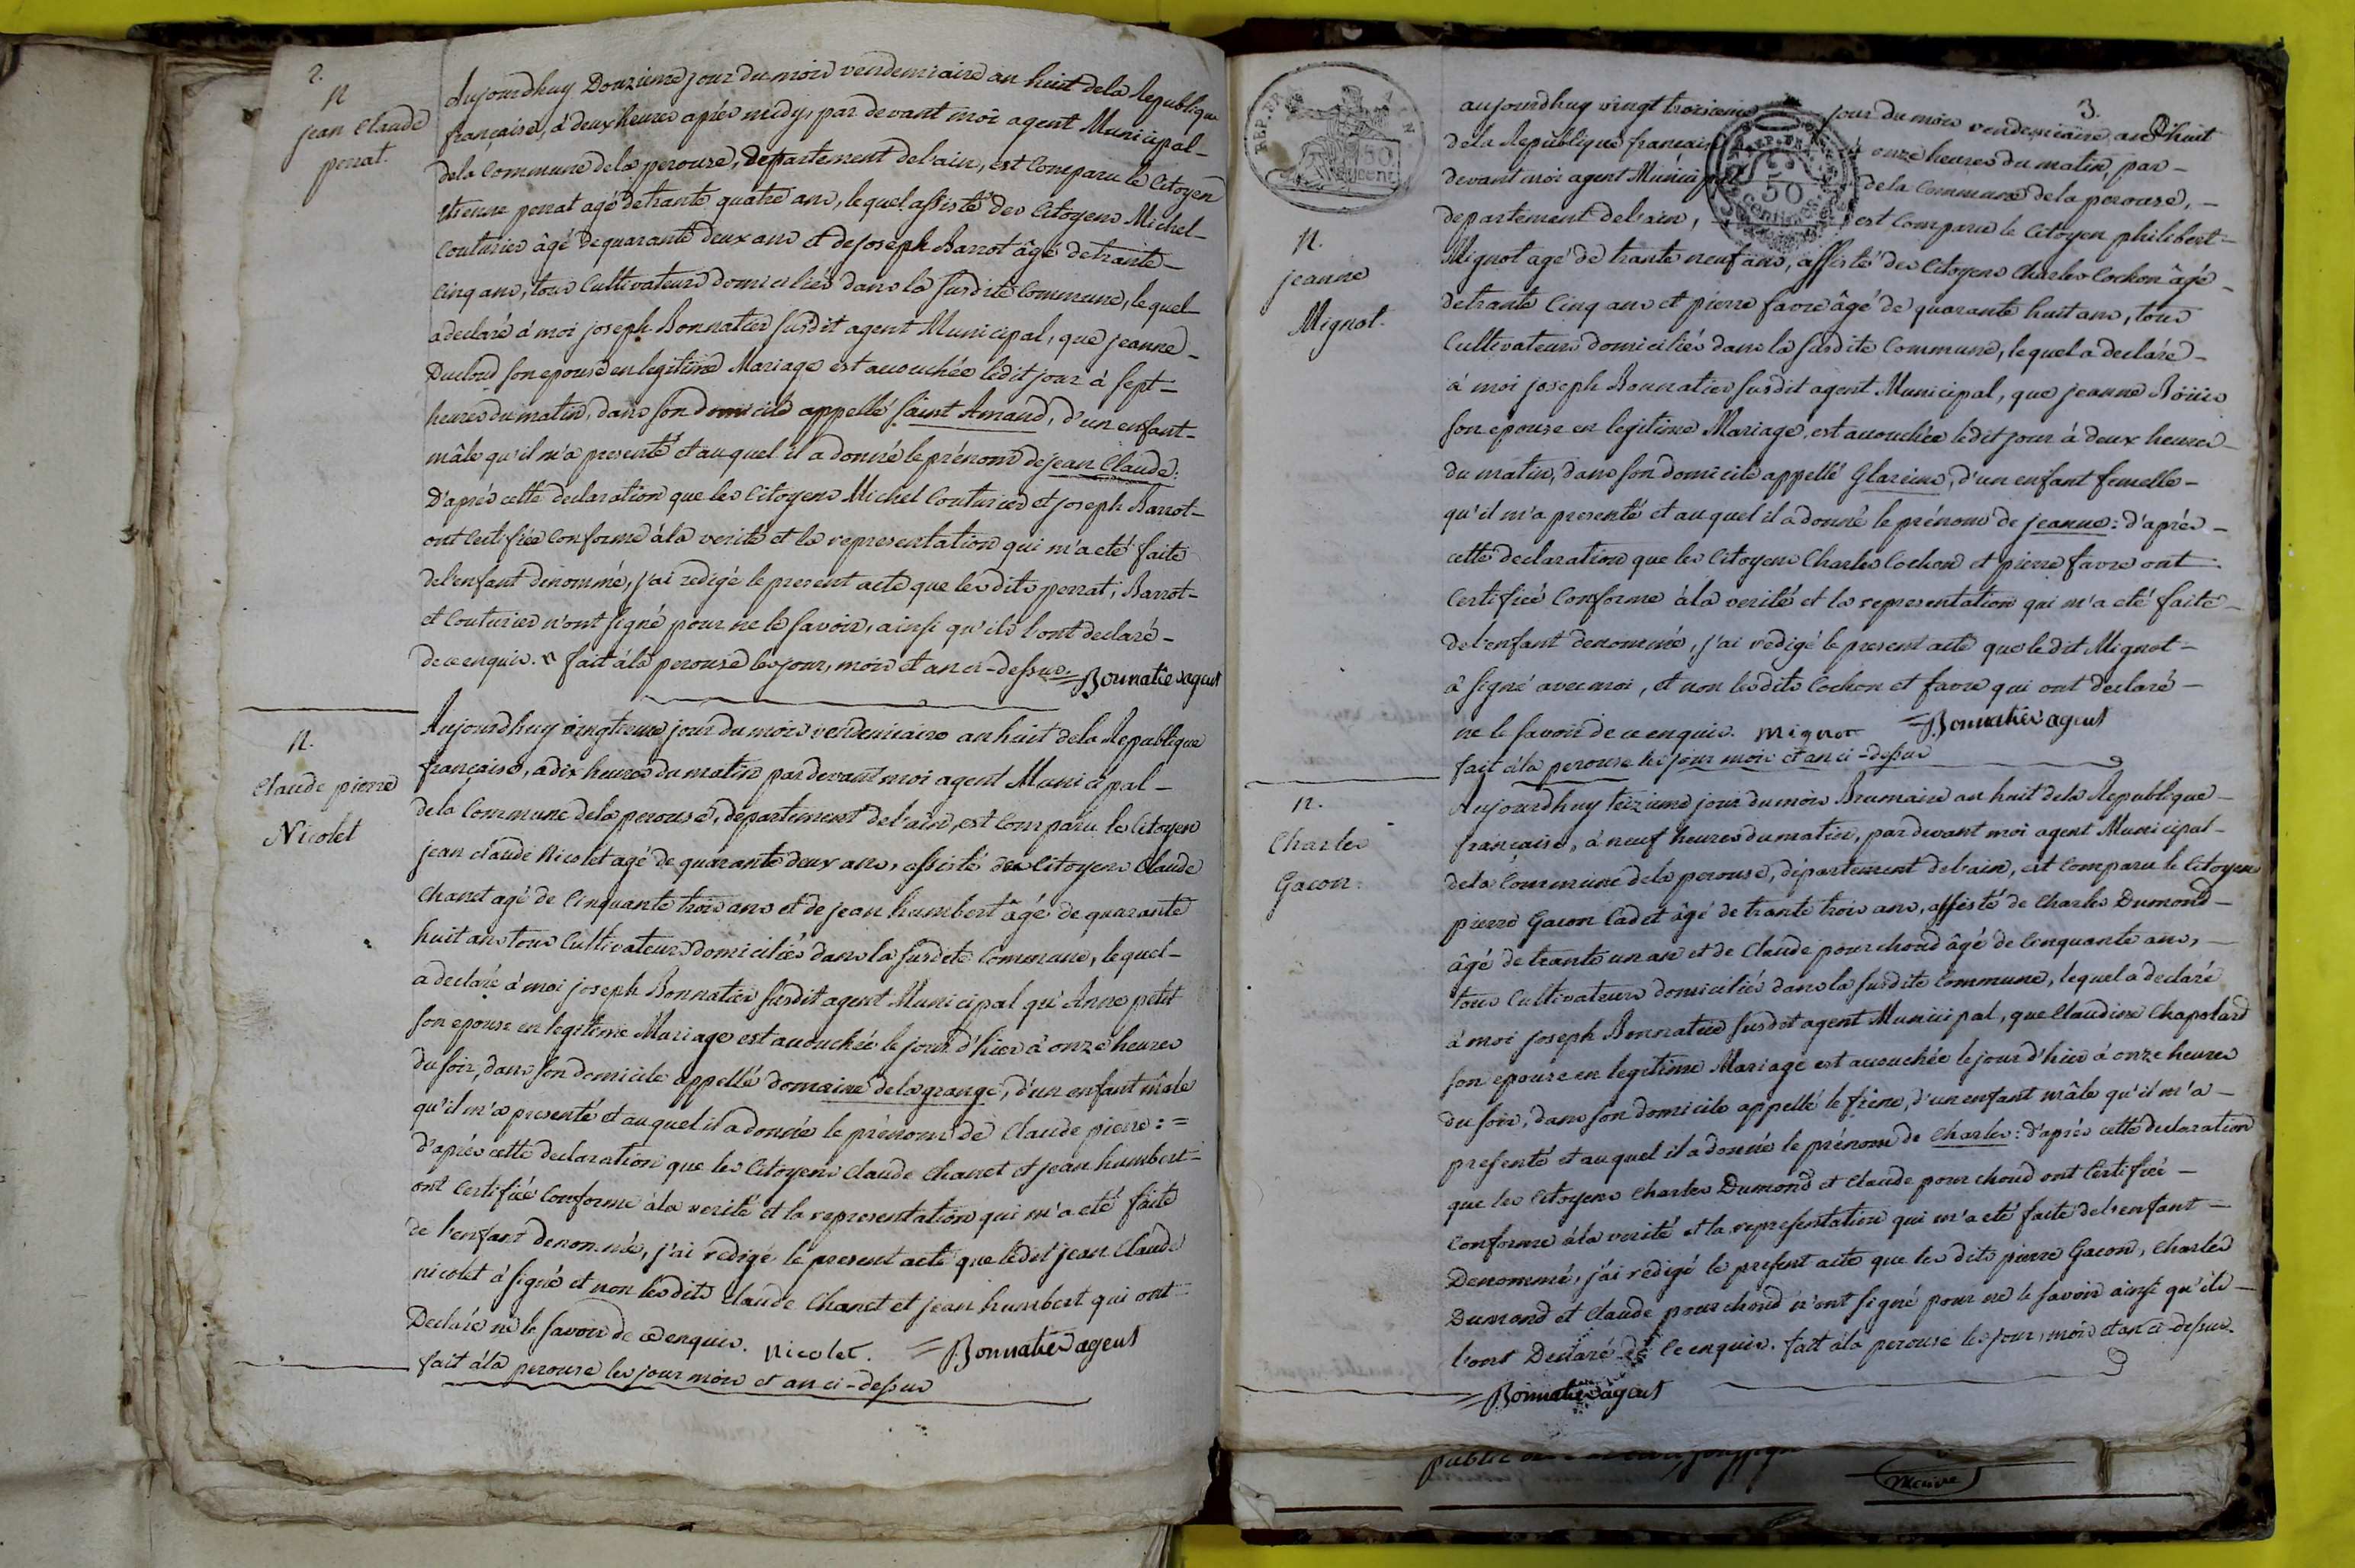 2.
N
jean Claude
perrat.
Aujourdhuy Douzieme jour du mois vendemiaire an huit dela Republique
française, à deux heures aprés midy, par devant moi agent Municipal-
dela Commune dela perouse, departement del'ain, est Comparu le Citoyen
etienne perrat agé detrante quatre ans, lequel assisté des Citoyens Michel-
Couturier âgé dequarante deux ans et de joseph Barrot âgé detrante-
Cinq ans, tous Cultivateurs domiciliés dans la susdite Commune, lequel
a declaré à moi joseph Bonnatier susdit agent Municipal, que jeanne-
Ducloud son epouse en legitime Mariage est accouchée ledit jour à sept-
heures du matin, dans son domicile appellé saint Amand, d'un enfant-
mâle qu'il m'a presenté et auquel il a donné le prénom de jean Claude:
D'aprés cette declaration que les Citoyens Michel Couturier et joseph Barrot-
ont Certifiée Conforme àla verité et la representation qui m'a eté faite
del'enfant denommé, j'ai redigé le present acte que lesdits perrat, Barrot-
et Couturier n'ont signé pour ne le savoir, ainsi qu'ils l'ont declaré-
de ce enquis. fait àla perouse les jour, mois et an ci-dessus = Bonnatier agent
N.
Claude pierre
Nicolet
Aujourdhuy vingtieme jour du mois vendemiaire an huit dela Republique
française, à dix heures du matin par devant moi agent Municipal-
dela Commune dela perouse, departement del'ain, est Comparu le Citoyen
jean claude Nicolet agé de quarante deux ans, assisté des Citoyens Claude
Chanet agé de Cinquante trois ans et de jean humbert âgé de quarante
huit ans tous Cultivateurs domiciliés dans la susdite Commune, lequel-
a declaré à moi joseph Bonnatier susdit agent Municipal qu'Anne petit
son epouse en legitime Mariage est accouchée le jour d'hier à onze heures
du soir, dans son domicile appellé domaine de la grange, d'un enfant mâle
qu'il m'a presenté et auquel il a donné le prénom de Claude pierre: =
d'aprés cette declaration que les Citoyens Claude Chanet et jean humbert-
ont Certifiée Conforme àla verité et la representation qui m'a eté faite
de l'enfant denommé, j'ai redigé le present acte que ledit jean Claude
nicolet à signé et non lesdits Claude Chanet et jean humbert qui ont-
Declaré ne le savoir de ce enquis. Nicolet. = Bonnatier agent
fait àla perouse les jour mois et an ci-dessus
REP. FRA AIN.
50 cent
3.
N.
jeanne
Mignot.
aujourdhuy vingt troisieme jour du mois vendemiaire an huit
dela Republique française à onze heures du matin, par-
devant moi agent Municip dela Commune dela perouse, -
departement del'ain, est Comparu le Citoyen philibert-
Mignot agé de trante neuf ans, assisté des Citoyens Charles Cochon âgé-
detrante Cinq ans et pierre favre âgé de quarante huit ans, tous
Cultivateurs domiciliés dans la susdite Commune, lequel a declaré-
à moi joseph Bonnatier susdit agent Municipal, que jeanne
son epouse en legitime Mariage, est accouchée ledit jour à deux heures-
du matin, dans son domicile appellé Glareins, d'un enfant femelle-
qu'il m'a presenté et auquel il a donné le prénom de jeanne: d'aprés-
cette declaration que les Citoyens Charles Cochon et pierre favre ont-
Certifiée Conforme àla verité et la representation qui m'a eté faite-
de l'enfant denommé, j'ai redigé le present acte que ledit Mignot-
à signé avec moi, et non lesdits Cochon et favre qui ont declaré-
ne le savoir de ce enquis. Mignot = Bonnatier agent
fait àla perouse les jour mois et an ci-dessus
N.
Charles
Gacon.
Aujourdhuy treizieme jour du mois Brumaire an huit dela Republique-
française, à neuf heures du matin, par devant moi agent Municipal-
dela Commune dela perouse, département del'ain, est Comparu le Citoyen
pierre Gacon Cadet âgé de trante trois ans, assisté de Charles Dumond-
âgé de trante un an et de Claude pourchoud âgé de Cinquante ans, -
tous Cultivateurs domiciliés dans la susdite Commune, lequel a declaré
à moi joseph Bonnatier susdit agent Municipal, que Claudine Chapolard
son epouse en legitime Mariage est accouchée le jour d'hier à onze heures
du soir, dans son domicile appellé le frêne, d'un enfant mâle qu'il m'a-
presenté et auquel il a donné le prénom de Charles: d'aprés cette declaration
que les Citoyens Charles Dumond et Claude pourchoud ont Certifiée-
Conforme àla verité et la representation qui m'a eté faite de l'enfant-
Denommé, j'ai redigé le present acte que lesdits pierre Gacon, Charles
Dumond et Claude pourchoud n'ont signé pour ne le savoir ainsi qu'ils-
l'ont Declaré de Ce enquis. fait àla perouse les jour, mois et an ci-dessus.
= Bonnatier agent
public
Maire